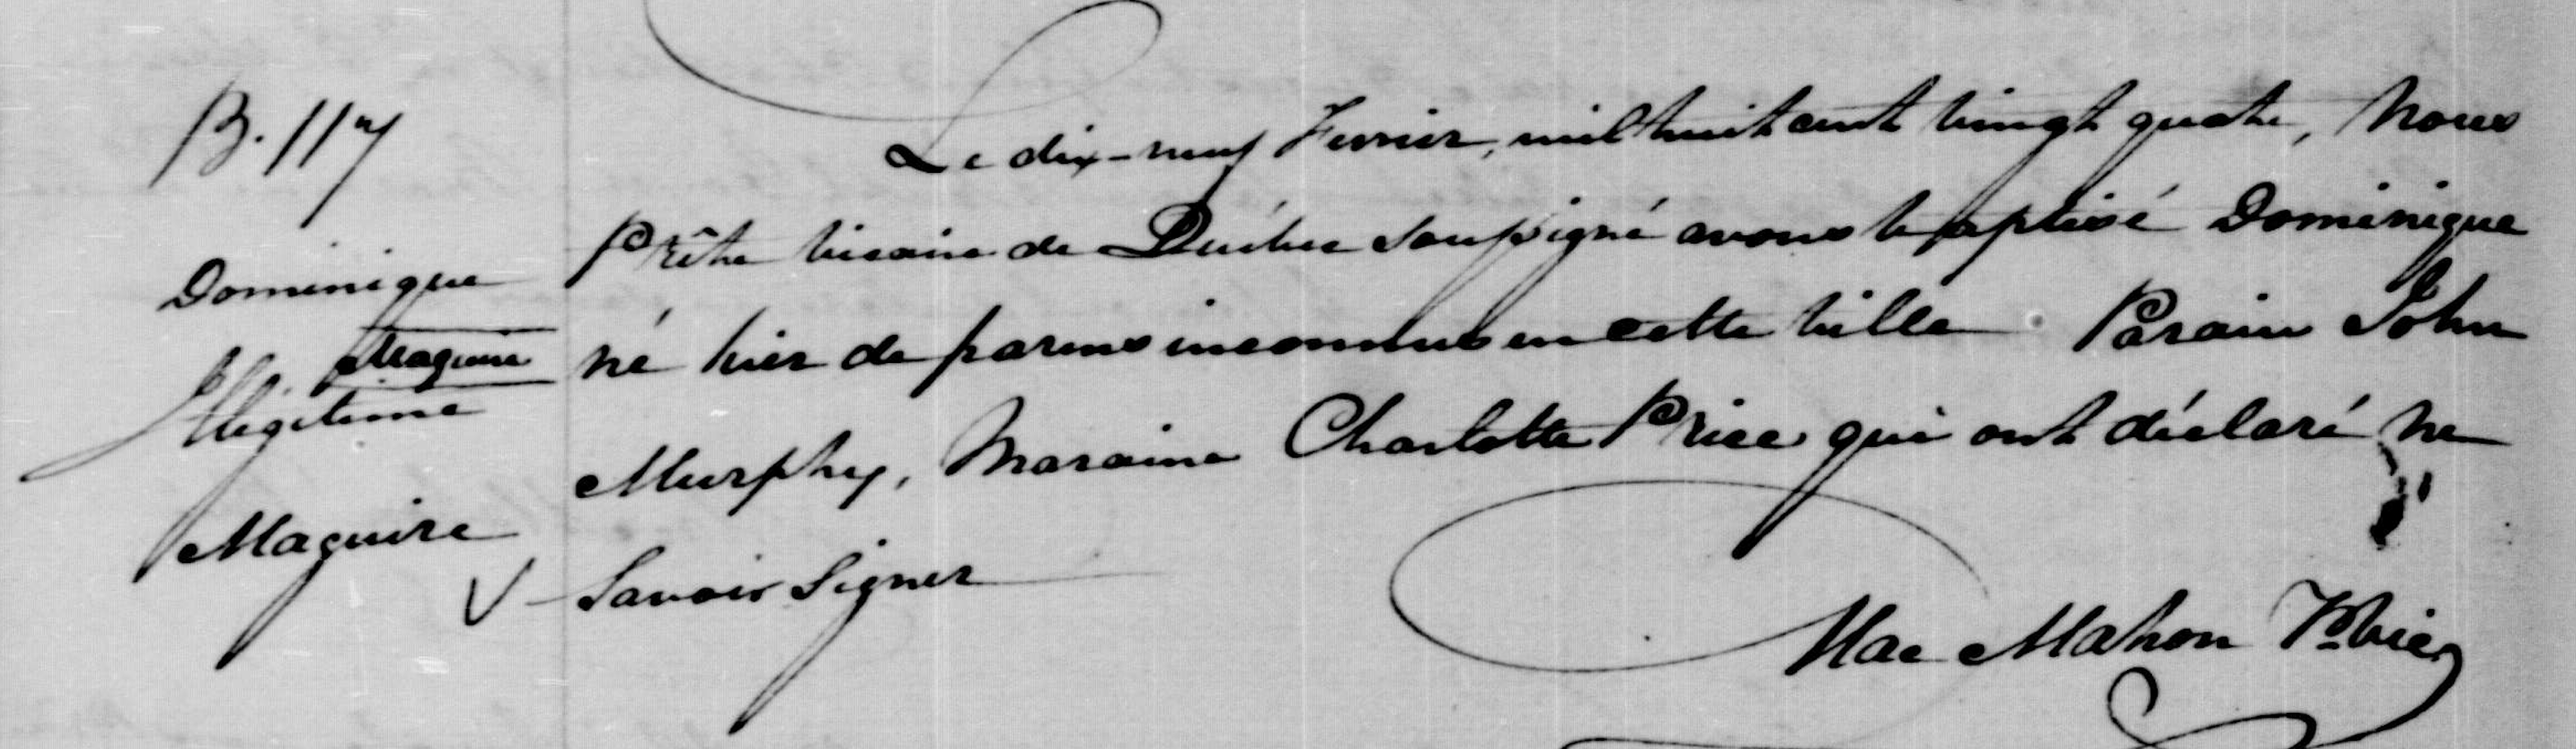 B. 117
Dominique
Maguire
Illégitime
Maguire
V
Le dix-neuf Fevrier, mil huit cent vingt quatre, Nous
Prêtre vicaire de Québec soussigné avons baptisé Dominique
né hier de parens inconnus en cette ville. Parain John
Murphy, Maraine Charlotte Price qui ont déclaré ne
savoir signer
Mac Mahon Ptre Vic.